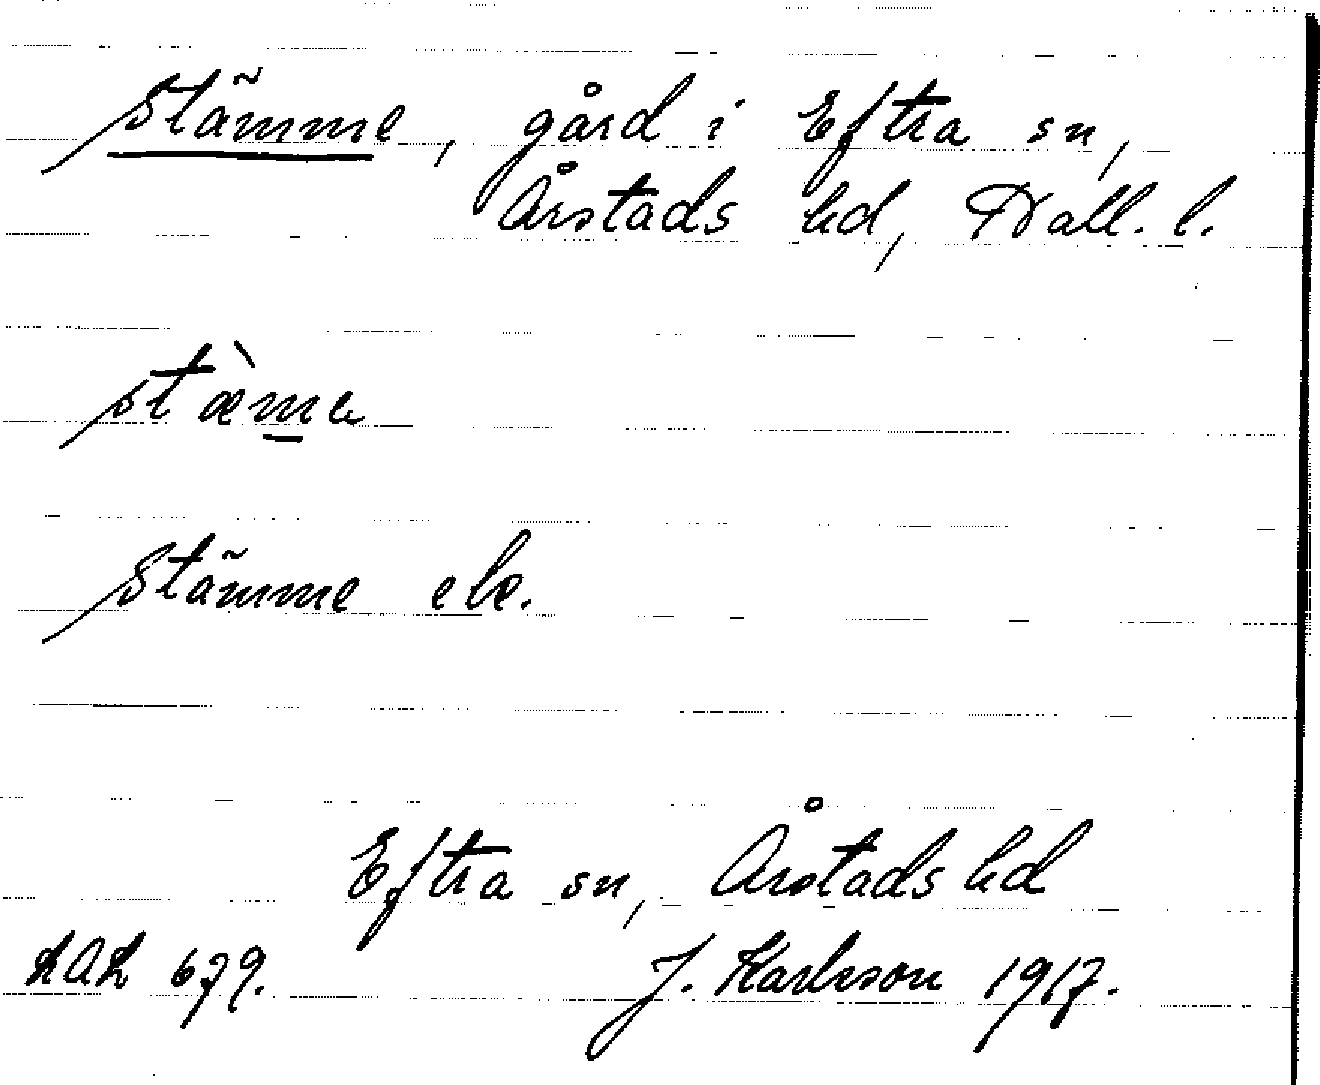 Stämme, gård i Eftra sn,
Årstads hd, Hall. l.
stæ̀me
Stämme ek.
Eftra sn, Årstads hd
LAL 679. J. Karlsson 1917.